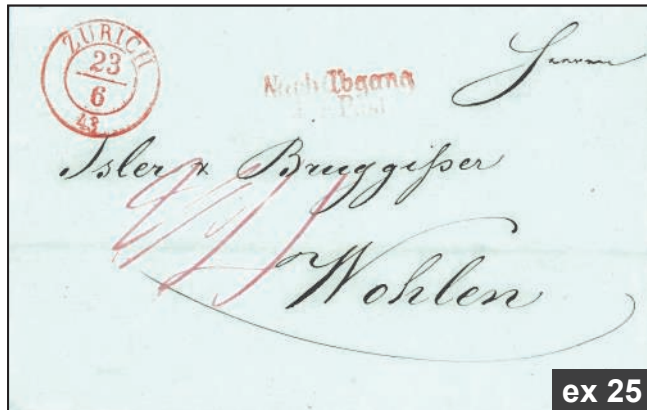 ZÜRICH
23
6
43
Nach Abgang
der Post
Herren
Isler & Bruggißer
Wohlen
ex 25